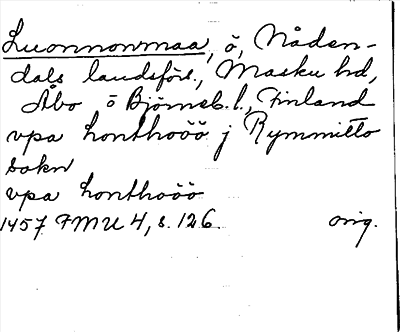 Luonnonmaa, ö, Nåden-
dals landsförs., Masku hd,
Åbo o Björneb. l., Finland
vpa honthoöö j Rymmitto
sokn
vpa honthoöö
1457 FMU 4, s. 126. orig.